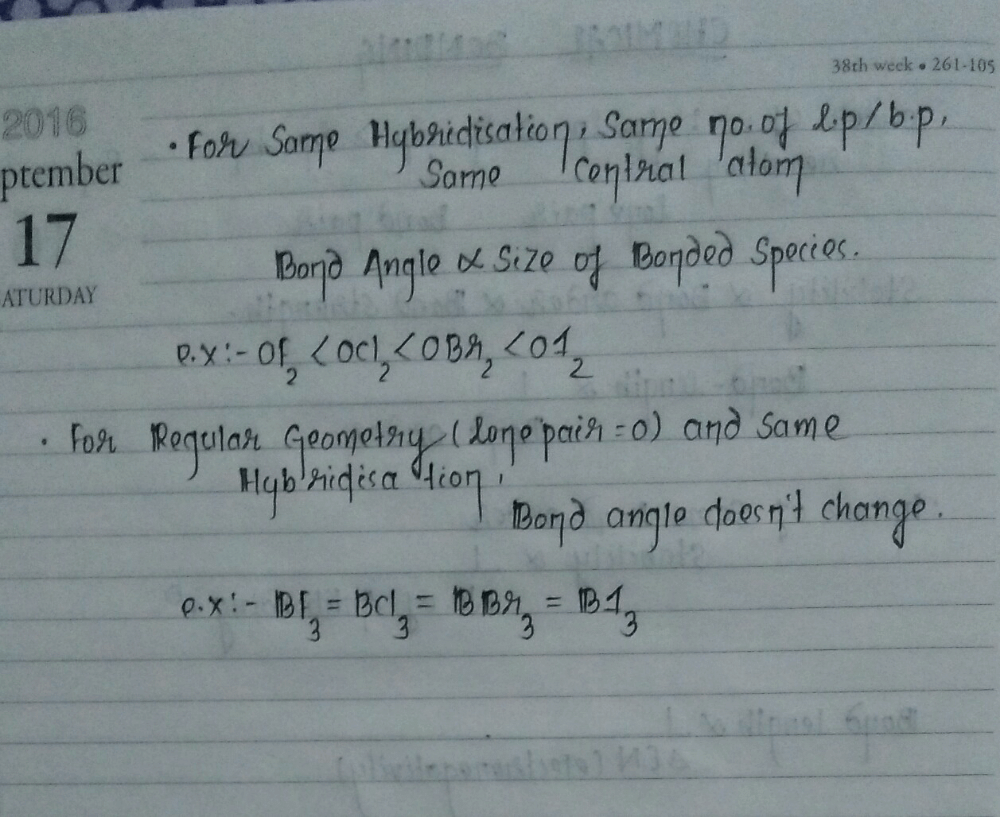 38th week • 261-105
2016
ptember
17
ATURDAY
• For Same Hybridisation, Same no. of l.p/b.p,
Same Central atom
Bond Angle ∝ Size of Bonded Species.
e.x:- OF₂ < OCl₂ < OBr₂ < OI₂
• For Regular Geometry (lone pair = 0) and same
Hybridisation,
Bond angle doesn't change.
e.x:- BF₃ = BCl₃ = BBr₃ = BI₃